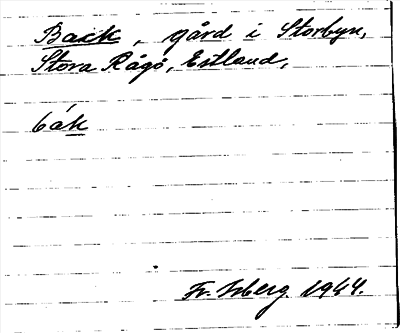 Back, gård i Storbyn,
Stora Rågö, Estland,
bak
Fr. Isberg. 1944.